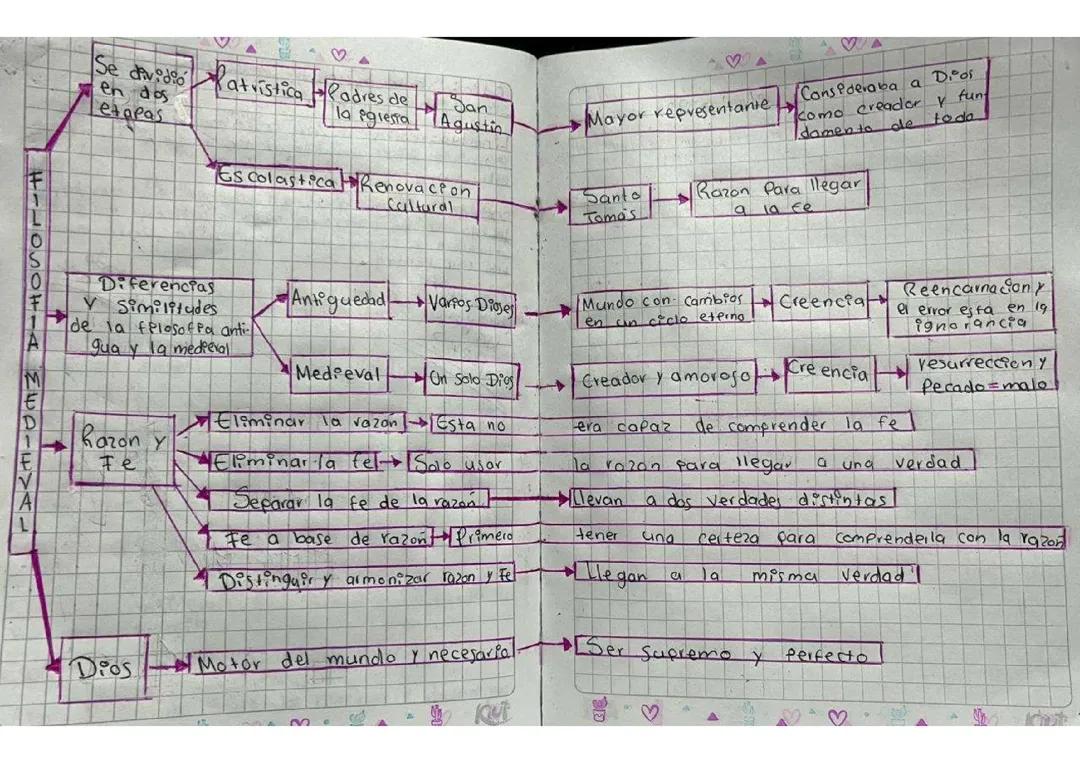 FILOSOFIA MEDIEVAL
Se dividió
en dos
etapas
Patristica
Padres de
la iglesia
San
Agustin
Mayor representante
Consideraba a Dios
como creador y fun
damento de todo
Escolastica
Renovacion
Cultural
Santo
Tomás
Razon Para llegar
a la fe
Diferencias
y similitudes
de la filosofia anti-
gua y la medieval
Antiguedad
Varios Dioses
Mundo con cambios
en un ciclo eterno
Creencia
Reencarnacion y
el error esta en la
ignorancia
Medieval
Un solo Dios
Creador y amoroso
Creencia
resurreccion y
Pecado=malo
Razon y
Fe
Eliminar la razon
Esta no era capaz de comprender la fe
Eliminar la fe
Solo usar la razon para llegar a una verdad
Separar la fe de la razon
Llevan a dos verdades distintas
Fe a base de razon
Primero tener una certeza para comprenderla con la razon
Distinguir y armonizar razon y Fe
Llegan a la misma verdad
Dios
Motor del mundo y necesario
Ser supremo y perfecto